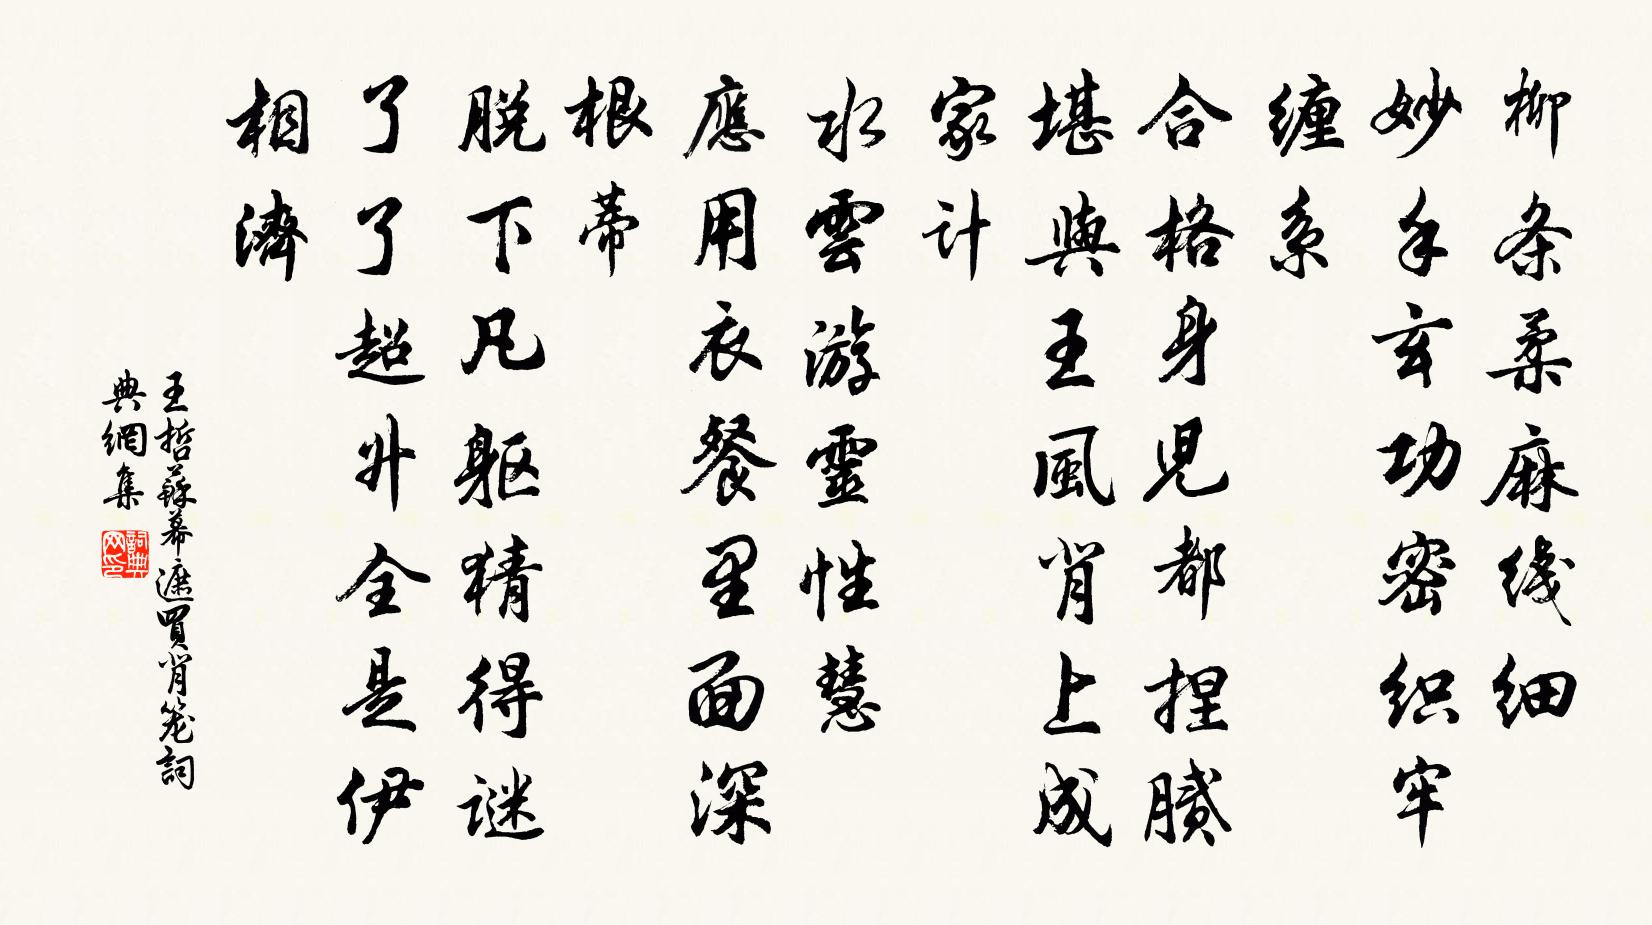 柳条柔麻线细
妙手玄功密织牢
缠系
合格身儿都捏腻
堪與王風肖上成
家计
水雲游靈性慧
應用衣餐里面深
根蒂
脱下凡躯猜得谜
了了超升全是伊
相濟
王哲蘇幕遮買肖笼詞
典網集
詞典网印